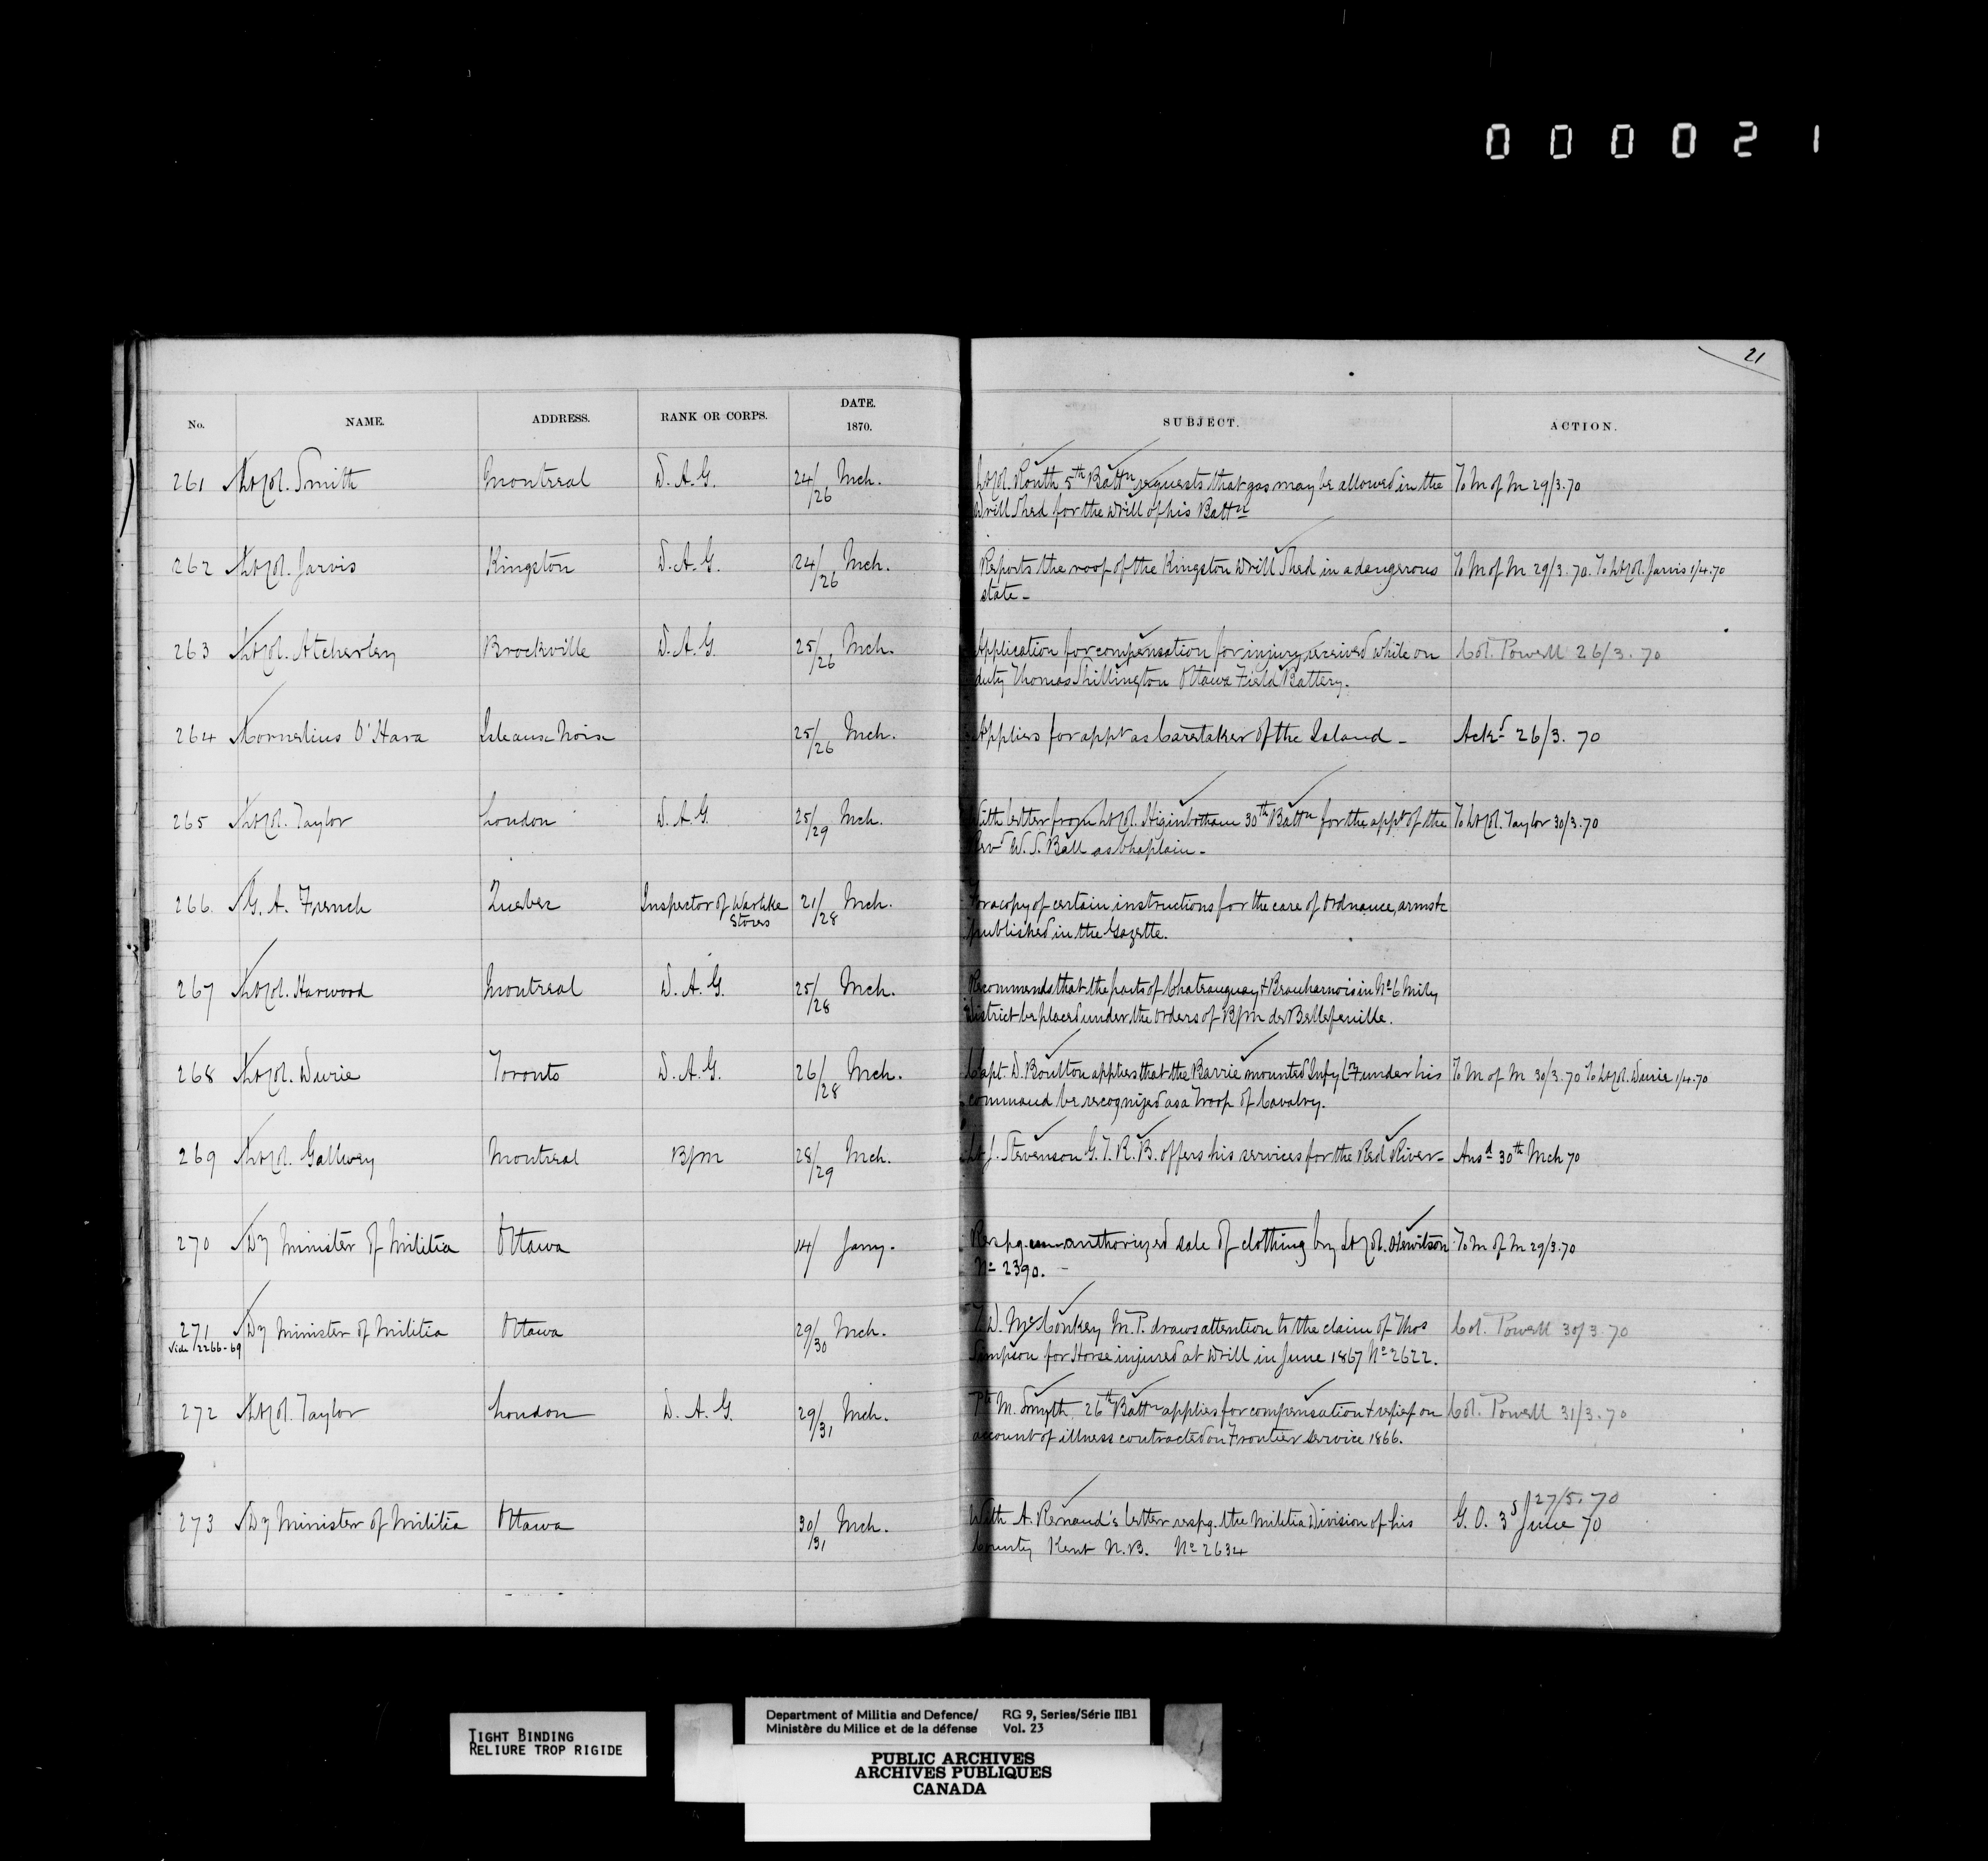 000021
21
No. NAME. ADDRESS. RANK OR CORPS. DATE. 1870. SUBJECT. ACTION.
261 Lt Col. Smith Montreal D.A.G. 24/26 Mch. Lt Col. Routh 5th Battn requests that gas may be allowed in the To M of M 29/3.70
Drill Shed for the drill of his Battn
262 Lt Col. Jarvis Kingston D.A.G. 24/26 Mch. Reports the roof of the Kingston Drill Shed in a dangerous To M of M 29/3.70. To Lt Col. Jarvis 1/4.70
state -
263 Lt Col. Atcherley Brockville D.A.G. 25/26 Mch. Application for compensation for injury received while on Col. Powell 26/3.70
duty Thomas Shillington Ottawa Field Battery.
264 Cornelius O'Hara Isle aux Noix 25/26 Mch. Applies for appt as Caretaker of the Island - Ackd 26/3.70
265 Lt Col. Taylor London D.A.G. 25/29 Mch. With letter from Lt Col. Higinbotham 30th Battn for the appt of the To Lt Col. Taylor 30/3.70
Revd W.S. Ball as Chaplain -
266. G.A. French Quebec Inspector of Warlike Stores 21/28 Mch. For a copy of certain instructions for the care of Ordnance, arms &c
published in the Gazette.
267 Lt Col. Harwood Montreal D.A.G. 25/28 Mch. Recommends that the parts of Chateauguay & Beauharnois in No 6 Mily
District be placed under the orders of B M de Bellefeuille.
268 Lt Col. Durie Toronto D.A.G. 26/28 Mch. Capt. D. Boulton applies that the Barrie mounted Infy Coy under his To M of M 30/3.70 To Lt Col. Durie 1/4.70
command be recognized as a Troop of Cavalry.
269 Lt Col. Gallwey Montreal BM 28/29 Mch. Lt J. Stevenson G.T.R.B. offers his services for the Red River - Ansd 30th Mch 70
270 Dy Minister of Militia Ottawa 14/ Jany. Respg. unauthorized sale of clothing by Lt Col. Hewitson To M of M 29/3.70
No 2390. -
271 Dy Minister of Militia Ottawa 29/30 Mch. T.D. McConkey M.P. draws attention to the claim of Thos Col. Powell 30/3.70
Vide 12266-69 Simpson for Horse injured at Drill in June 1867 No 2622.
272 Lt Col. Taylor London D.A.G. 29/31 Mch. Pte M. Smyth 26th Battn applies for compensation & relief on Col. Powell 31/3.70
account of illness contracted on Frontier service 1866.
273 Dy Minister of Militia Ottawa 30/31 Mch. With A. Renaud's letter respg. the Militia Division of his G.O. 3d June 70 27/5.70
County Kent N.B. No 2634
TIGHT BINDING
RELIURE TROP RIGIDE
Department of Militia and Defence/ RG 9, Series/Série IIB1
Ministère du Milice et de la défense Vol. 23
PUBLIC ARCHIVES
ARCHIVES PUBLIQUES
CANADA